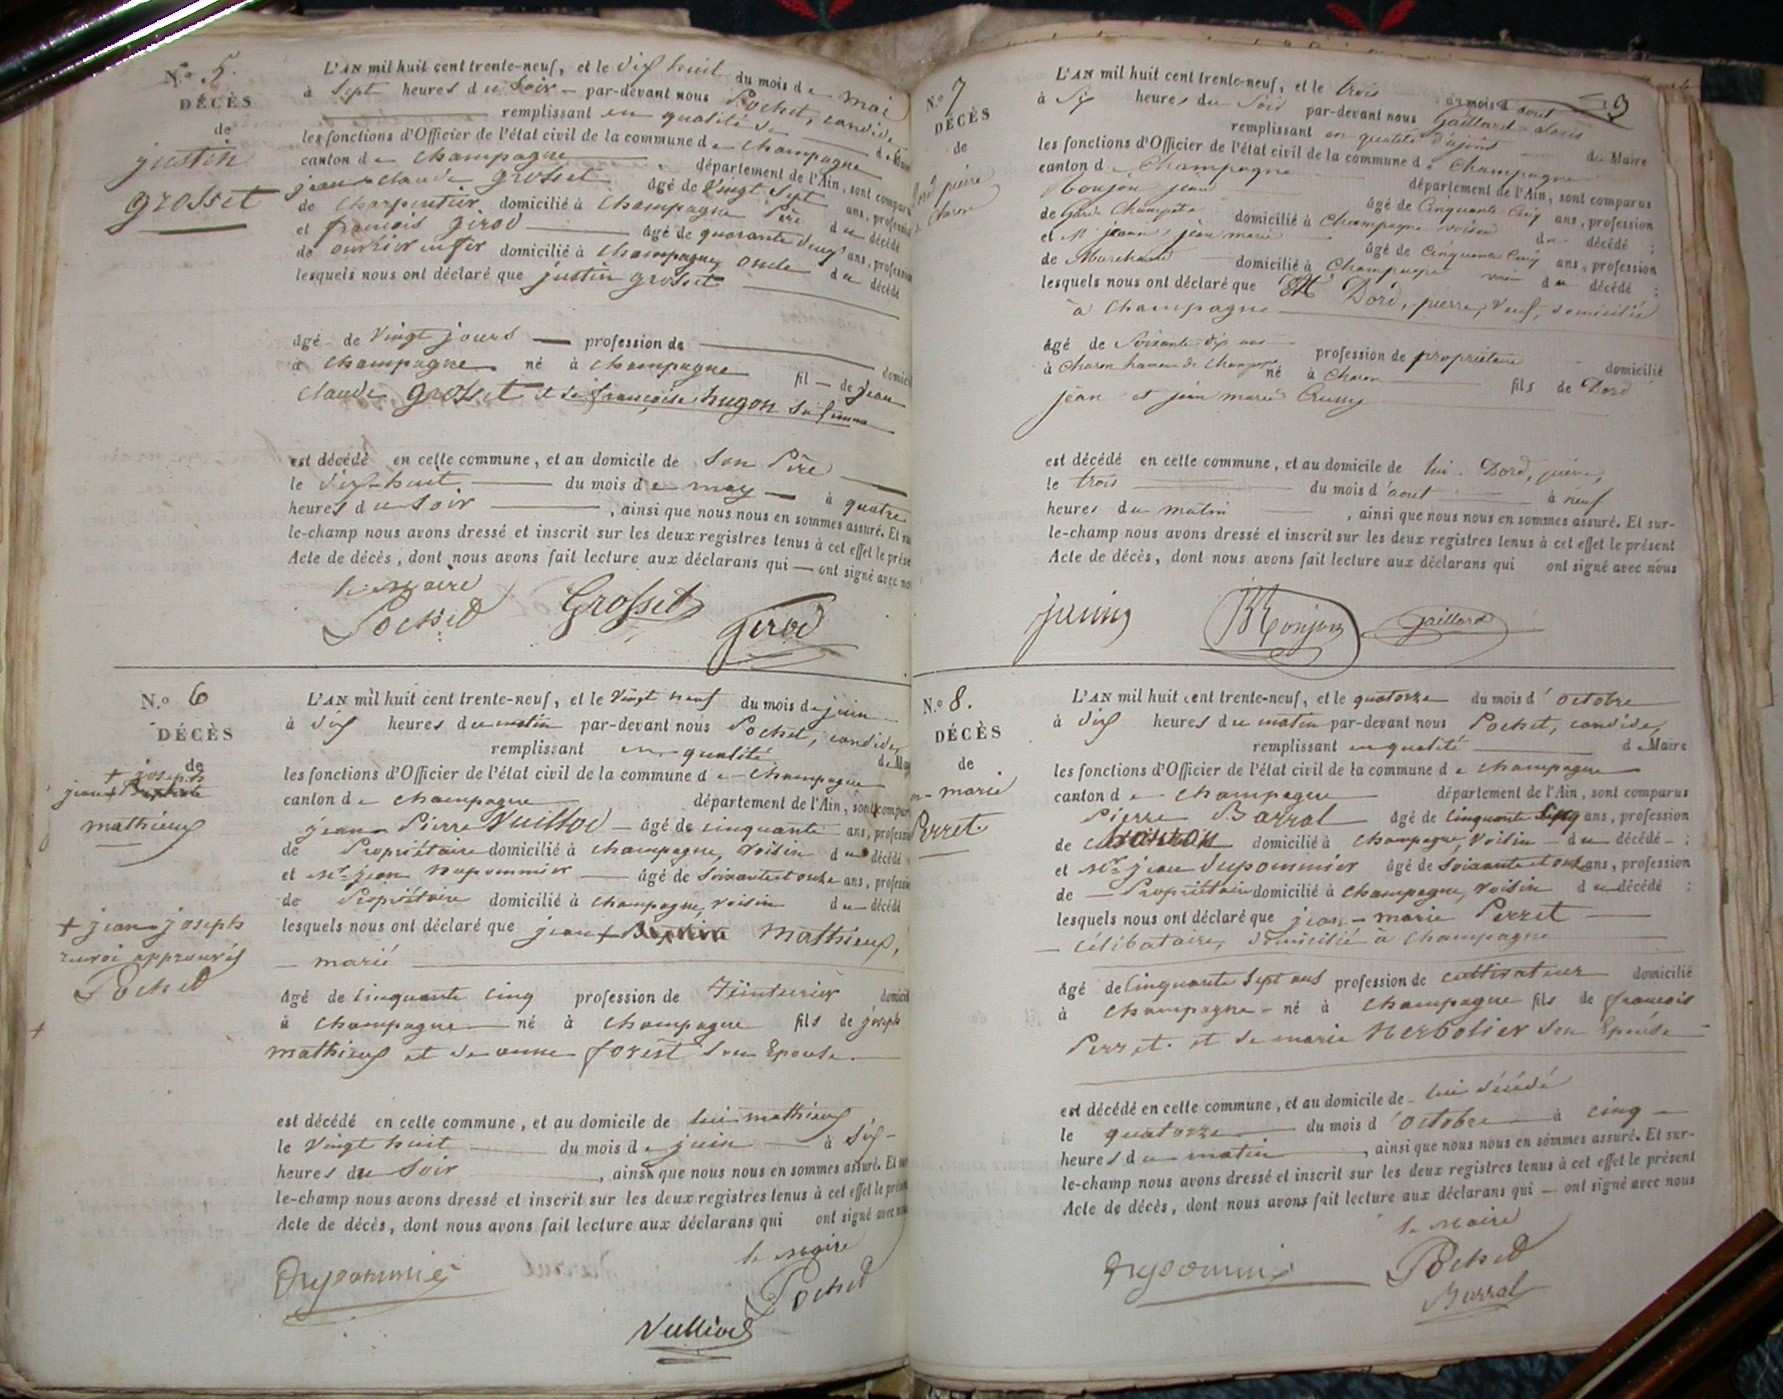 N.o 5.
DÉCÈS
de
justin
grosset
L'AN mil huit cent trente-neuf, et le dix huit du mois de mai
à sept heures du soir par-devant nous Pochet, candide,
remplissant en qualité de
les fonctions d'Officier de l'état civil de la commune de champagne
canton de champagne département de l'Ain, sont comparus
jean claude grosset âgé de vingt sept ans, profession
de charpentier domicilié à champagne Père du décédé
et françois girod âgé de quarante deux ans, profession
de ouvrier en fer domicilié à champagne oncle du décédé
lesquels nous ont déclaré que justin grosset
âgé de vingt jours profession de domicil
à champagne né à champagne fil de jean
claude grosset et de françoise hugon sa femme
est décédé en cette commune, et au domicile de son Père
le dix-huit du mois de may à quatre
heures du soir , ainsi que nous nous en sommes assuré. Et su
le-champ nous avons dressé et inscrit sur les deux registres tenus à cet effet le prése
Acte de décès, dont nous avons fait lecture aux déclarans qui ont signé avec no
le maire
Pochet Grosset Girod
N.o 6
DÉCÈS
de
+ joseph
jean + Baptiste
mathieux
+ jean joseph
renvoi approuvés
Pochet
+
L'AN mil huit cent trente-neuf, et le vingt neuf du mois de juin
à dix heures du matin par-devant nous Pochet, candide,
remplissant en qualité de Mai
les fonctions d'Officier de l'état civil de la commune de champagne
canton de champagne département de l'Ain, sont compar
jean Pierre Vuillod âgé de cinquante ans, profession
de Propriétaire domicilié à champagne, voisin du décédé
et Mr jean dupommier âgé de soixante et onze ans, profession
de Propriétaire domicilié à champagne, voisin du décédé
lesquels nous ont déclaré que jean + Baptiste mathieux,
marié
âgé de cinquante cinq profession de Teinturier domicil
à champagne né à champagne fils de joseph
mathieux et de anne forest son Epouse.
est décédé en cette commune, et au domicile de lui mathieux
le vingt huit du mois de juin à dix
heures du soir , ainsi que nous nous en sommes assuré. Et sur
le-champ nous avons dressé et inscrit sur les deux registres tenus à cet effet le présen
Acte de décès, dont nous avons fait lecture aux déclarans qui ont signé avec nous
Dupommier le maire
Pochet
Vulliod
9
N.o 7
DÉCÈS
de
Dord pierre
L'AN mil huit cent trente-neuf, et le trois du mois d'aout
à six heures du soir par-devant nous Gaillard Louis
remplissant en qualité d'ajoint du Maire
les fonctions d'Officier de l'état civil de la commune de Champagne
canton de Champagne département de l'Ain, sont comparus
Monjou jean âgé de Cinquante Cinq ans, profession
de Garde Champetre domicilié à Champagne voisin du décédé ;
et Mr jeanin jean marie âgé de Cinquante Cinq ans, profession
de Marchand domicilié à Champagne voisin du décédé ;
lesquels nous ont déclaré que Mr Dord, pierre, veuf, domicilié
à Champagne
âgé de Soixante dix ans profession de propriétaire domicilié
à Charon hameau de Champagne né à Charon fils de Dord
jean et jean marie
est décédé en cette commune, et au domicile de lui Dord, pierre,
le trois du mois d'aout à neuf
heures du matin , ainsi que nous nous en sommes assuré. Et sur-
le-champ nous avons dressé et inscrit sur les deux registres tenus à cet effet le présent
Acte de décès, dont nous avons fait lecture aux déclarans qui ont signé avec nous
Monjou Gaillard
N.o 8.
DÉCÈS
de
marie
Perret.
L'AN mil huit cent trente-neuf, et le quatorze du mois d'octobre
à dix heures du matin par-devant nous Pochet, candide,
remplissant en qualité de Maire
les fonctions d'Officier de l'état civil de la commune de champagne
canton de champagne département de l'Ain, sont comparus
Pierre Barral âgé de cinquante ans, profession
de domicilié à champagne, voisin du décédé ;
et Mr jean dupommier âgé de soixante et onze ans, profession
de Propriétaire domicilié à champagne, voisin du décédé ;
lesquels nous ont déclaré que jean marie Perret
célibataire, domicilié à champagne
âgé de cinquante sept ans profession de cultivateur domicilié
à champagne né à champagne fils de françois
Perret. et de marie Herbolier son Epouse
est décédé en cette commune, et au domicile de lui décédé
le quatorze du mois d'octobre à cinq
heures du matin , ainsi que nous nous en sommes assuré. Et sur-
le-champ nous avons dressé et inscrit sur les deux registres tenus à cet effet le présent
Acte de décès, dont nous avons fait lecture aux déclarans qui ont signé avec nous
le maire
Dupommier Pochet
Barral